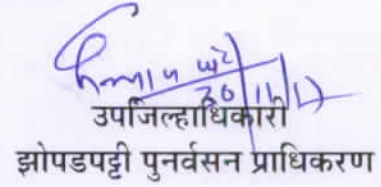 30/11/17
उपजिल्हाधिकारी
झोपडपट्टी पुनर्वसन प्राधिकरण